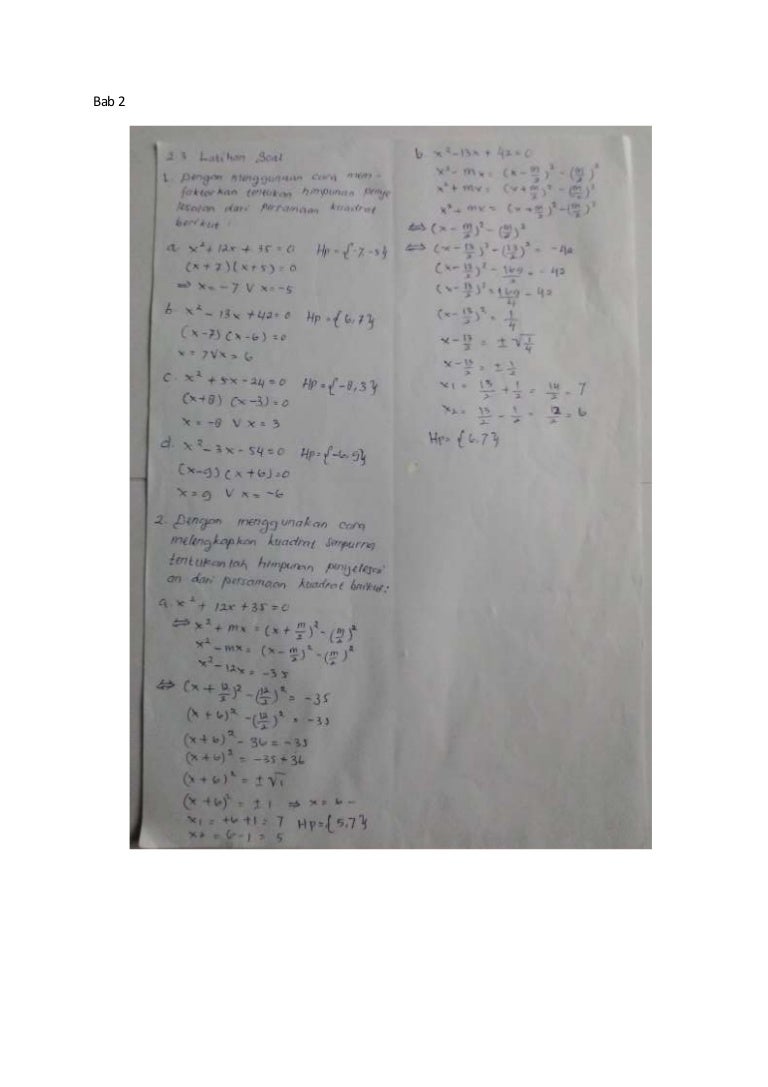 Bab 2
2.3 Latihan Soal
1. Dengan menggunaan cara mem-
faktorkan tentukan himpunan penye
lesaian dari persamaan kuadrat
berikut :
a. x² + 12x + 35 = 0 Hp = {-7,-5}
(x+7)(x+5) = 0
⇒ x = -7 V x = -5
b. x² - 13x + 42 = 0 Hp = {6,7}
(x-7) (x-6) = 0
x = 7 V x = 6
c. x² + 5x - 24 = 0 Hp = {-8,3}
(x+8) (x-3) = 0
x = -8 V x = 3
d. x² - 3x - 54 = 0 Hp = {-6,9}
(x-9) (x+6) = 0
x = 9 V x = -6
2. Dengan menggunakan cara
melengkapkan kuadrat sempurna
tentukanlah himpunan penyelesai
an dari persamaan kuadrat berikut :
a. x² + 12x + 35 = 0
⇔ x² + mx = (x + m/2)² - (m/2)²
x² - mx = (x - m/2)² - (m/2)²
x² - 12x = -35
⇔ (x + 12/2)² - (12/2)² = -35
(x+6)² - (12/2)² = -35
(x+6)² - 36 = -35
(x+6)² = -35 + 36
(x+6)² = ± √1
(x+6)² = ± 1 ⇒ x = 6 -
x1 = +6 + 1 = 7 Hp = {5,7}
x2 = 6 - 1 = 5
b. x² - 13x + 42 = 0
x² - mx = (x - m/2)² - (m/2)²
x² + mx = (x + m/2)² - (m/2)²
x² + mx = (x + m/2)² - (m/2)²
⇔ (x - m/2)² - (m/2)²
⇔ (x - 13/2)² - (13/2)² = -42
(x - 13/2)² - 169/2 = -42
(x - 13/2)² = 169/4 - 42
(x - 13/2)² = 1/4
x - 13/2 = ± √1/4
x - 13/2 = ± 1/2
x1 = 13/2 + 1/2 = 14/2 = 7
x2 = 13/2 - 1/2 = 12/2 = 6
Hp = {6,7}